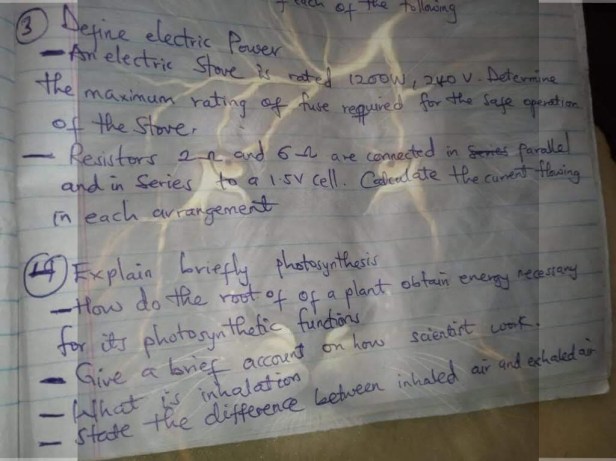 each of the following
(3) Define electric Power
- An electric Stove is rated 1200W, 240 V. Determine
the maximum rating of fuse required for the safe operation
of the Stove.
- Resistors 2Ω and 6Ω are connected in series parallel
and in Series to a 1.5V cell. Calculate the current flowing
in each arrangement
(4) Explain briefly photosynthesis
- How do the root of of a plant obtain energy necessary
for its photosynthetic functions
- Give a brief account on how scientist work.
- What is inhalation
- State the difference between inhaled air and exhaled air